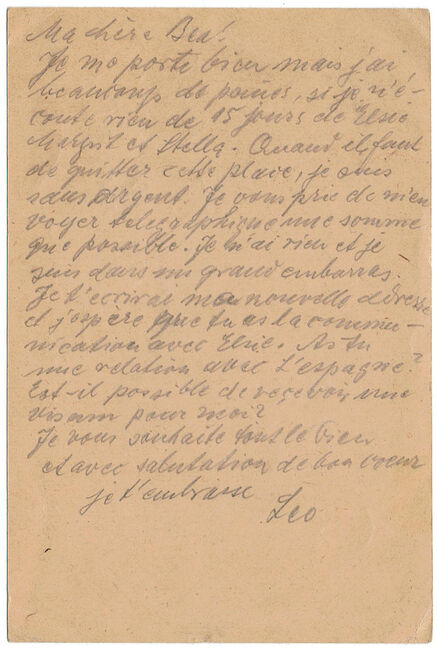 Ma chère Bea!
Je me porte bien mais j'ai
beaucoup de peines, si je n'é-
coute rien de 15 jours de Elsie
Margit et Stella. Quand il faut
de quitter cette place, je suis
sans argent. Je vous prie de m'en
voyer telegraphique une somme
que possible. Je n'ai rien et je
suis dans un grand embarras.
Je t'ecrirai ma nouvelle adresse
et j'espere que tu as la commu-
nication avec Elsie. As tu
une relation avec L'espagne?
Est-il possible de reçevoir une
visam pour moi?
Je vous souhaite tout le bien
et avec salutation de bon coeur
je t'embrasse
Leo